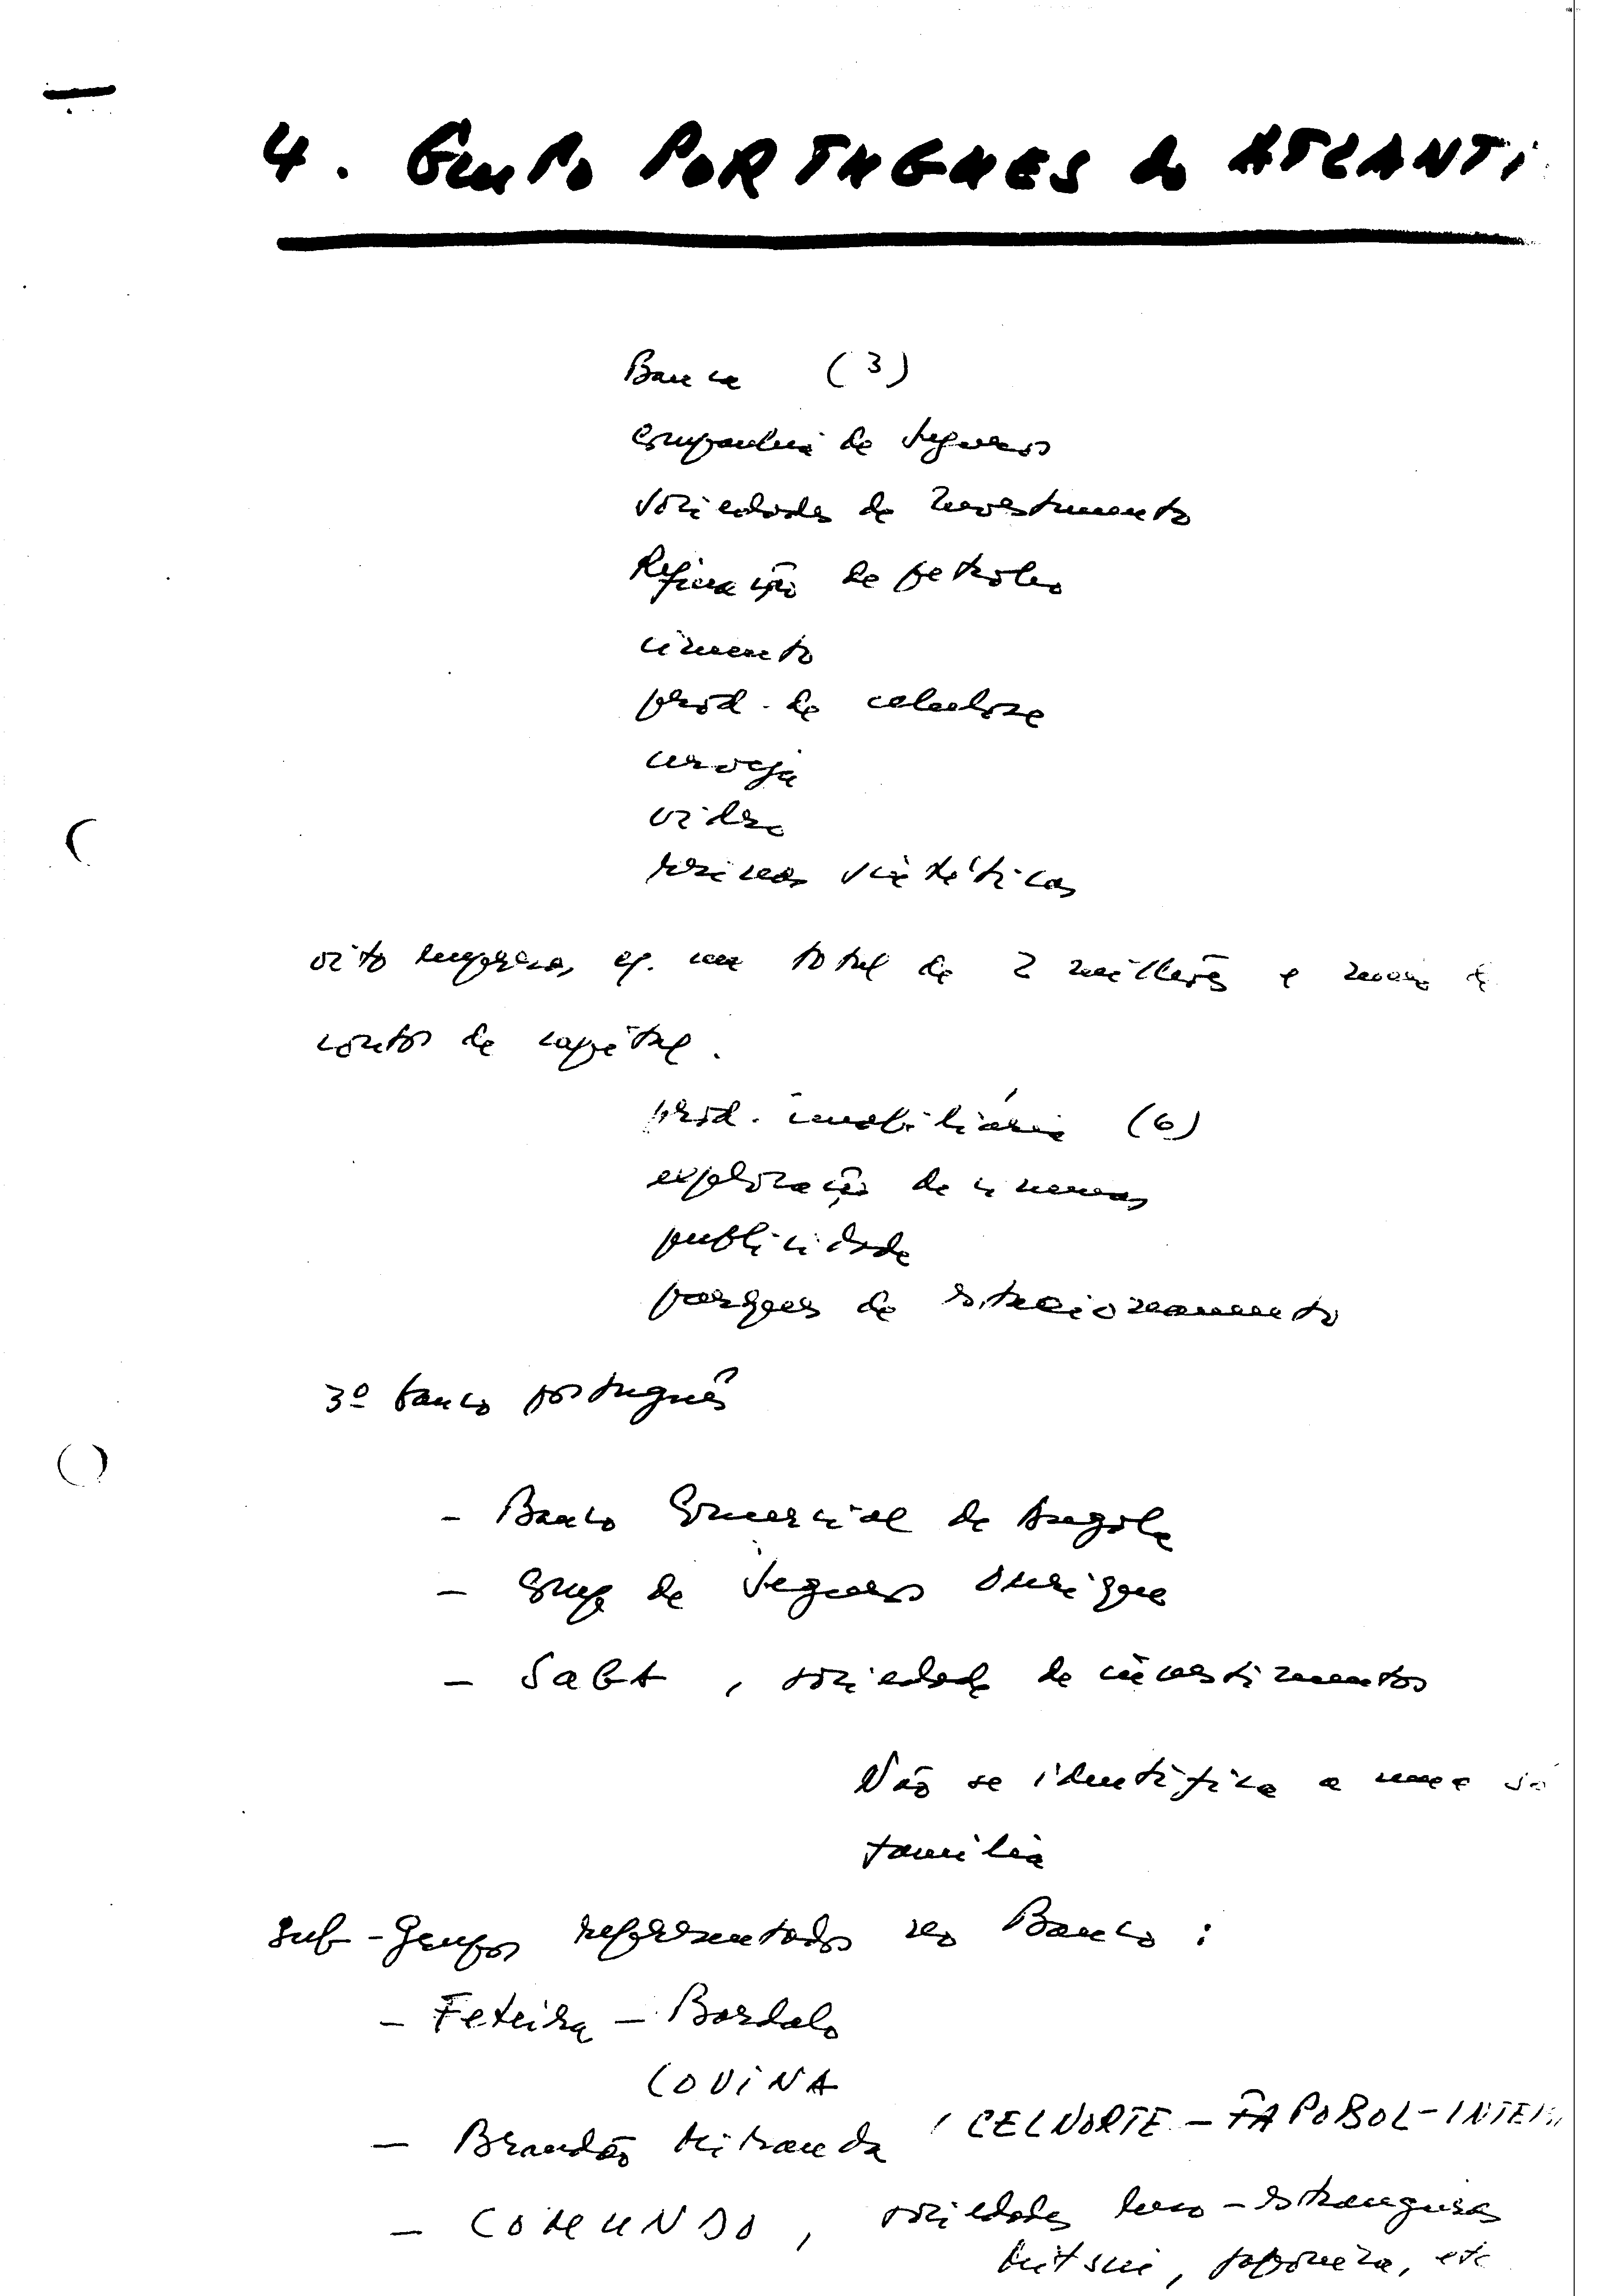 4. GRUPO PORTUGUES do ATLANTI
Banca (3)
companhia de seguros
sociedades de investimento
Refinação de petróleo
cimento
prod. de celulose
cerveja
vidro
resinas sintéticas
oito empresas, c/. um total de 2 milhões e meio
contos de capital.
prod. imobiliária (6)
exploração de cinemas
publicidade
parques de estacionamento
3º banco português
- Banco Comercial de Angola
- Grupo de Seguros Ourique
- SaBA, sociedade de investimentos
Não se identifica a uma só
família
Sub-Grupos representados no Banco:
- Feteira - Bordalo
COVINA
- Brandão Miranda, CELNORTE - FAPOBOL - INTER
- COMUNDO, sociedades luso-estrangeiras
Mitsui, japoneza, etc